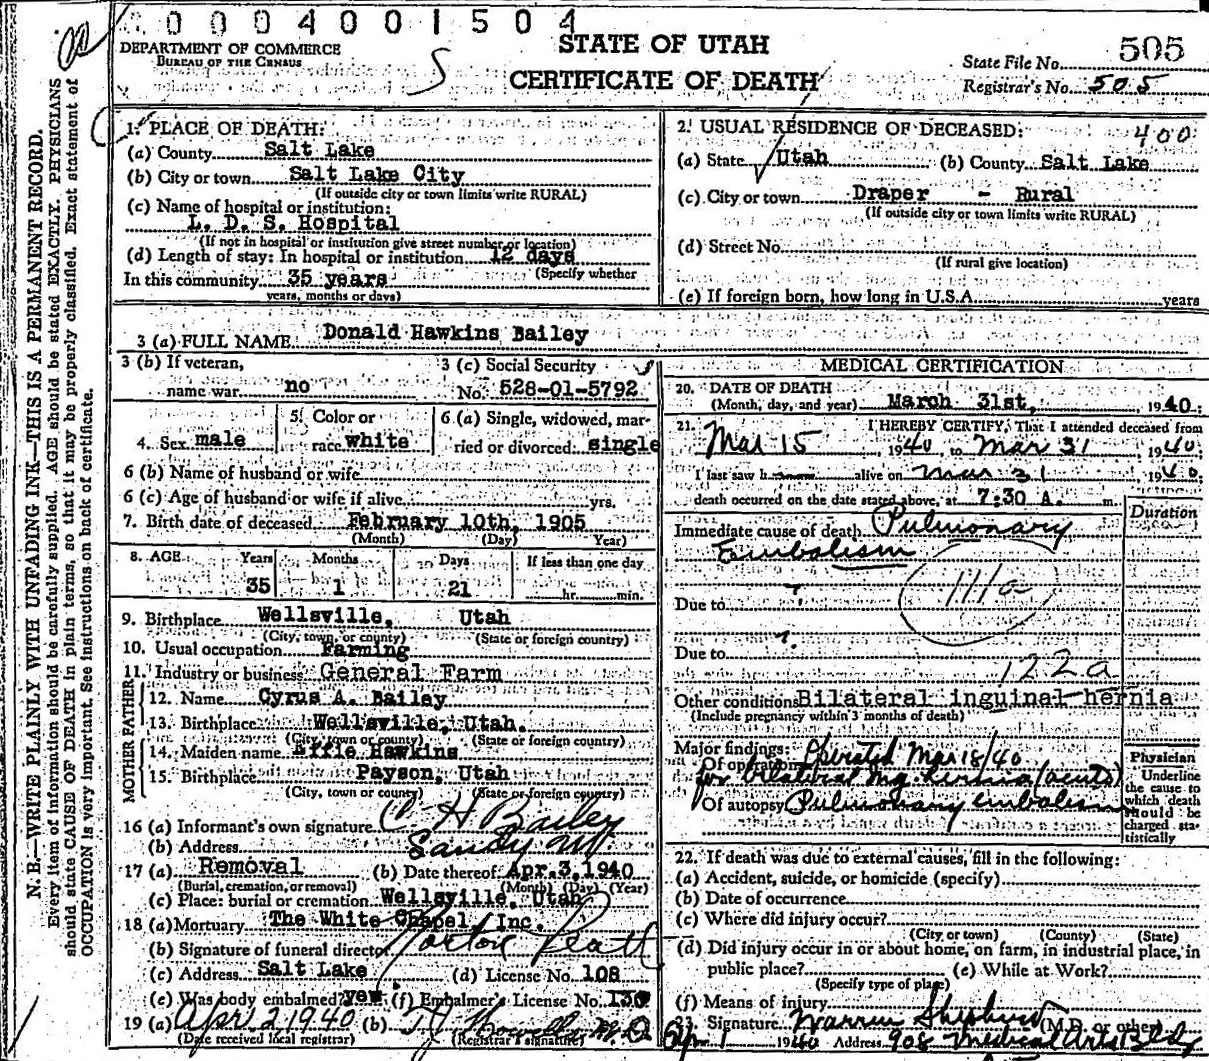 0004001504
DEPARTMENT OF COMMERCE
BUREAU OF THE CENSUS
STATE OF UTAH
CERTIFICATE OF DEATH
State File No. 505
Registrar's No. 505
N. B.—WRITE PLAINLY WITH UNFADING INK—THIS IS A PERMANENT RECORD.
Every item of information should be carefully supplied. AGE should be stated EXACTLY. PHYSICIANS
should state CAUSE OF DEATH in plain terms, so that it may be properly classified. Exact statement of
OCCUPATION is very important. See instructions on back of certificate.
1. PLACE OF DEATH:
(a) County Salt Lake
(b) City or town Salt Lake City
(If outside city or town limits write RURAL)
(c) Name of hospital or institution:
L. D. S. Hospital
(If not in hospital or institution give street number or location)
(d) Length of stay: In hospital or institution 12 days
(Specify whether
In this community 35 years
years, months or days)
2. USUAL RESIDENCE OF DECEASED: 400
(a) State Utah (b) County Salt Lake
(c) City or town Draper - Rural
(If outside city or town limits write RURAL)
(d) Street No.
(If rural give location)
(e) If foreign born, how long in U.S.A. years
3 (a) FULL NAME Donald Hawkins Bailey
3 (b) If veteran,
name war no
3 (c) Social Security
No. 528-01-5792
4. Sex male
5. Color or
race white
6 (a) Single, widowed, mar-
ried or divorced: single
6 (b) Name of husband or wife
6 (c) Age of husband or wife if alive yrs.
7. Birth date of deceased February 10th, 1905
(Month) (Day) Year)
8. AGE Years Months Days If less than one day
35 1 21 hr. min.
9. Birthplace Wellsville, Utah
(City, town, or county) (State or foreign country)
10. Usual occupation Farming
11. Industry or business General Farm
FATHER
12. Name Cyrus A. Bailey
13. Birthplace Wellsville, Utah.
(City, town or county) (State or foreign country)
MOTHER
14. Maiden name Effie Hawkins
15. Birthplace Payson, Utah
(City, town or county) (State or foreign country)
16 (a) Informant's own signature C H Bailey
(b) Address Sandy Ut.
17 (a) Removal (b) Date thereof Apr. 3, 1940
(Burial, cremation, or removal) (Month) (Day) (Year)
(c) Place: burial or cremation Wellsville, Utah
18 (a) Mortuary The White Chapel Inc.
(b) Signature of funeral director
(c) Address Salt Lake (d) License No. 108
(e) Was body embalmed? yes. (f) Embalmer's License No.
19 (a) Apr 2, 1940 (b) M.D.
(Date received local registrar) (Registrar's signature)
MEDICAL CERTIFICATION
20. DATE OF DEATH
(Month, day, and year) March 31st, 1940.
21. I HEREBY CERTIFY, That I attended deceased from
Mar 15 1940, to Mar 31, 1940.
I last saw h alive on Mar 31 1940.
death occurred on the date stated above, at 7:30 A. m.
Duration
Immediate cause of death Pulmonary
Embolism
111a
Due to ?
Due to ?
122a
Other conditions Bilateral inguinal hernia
(Include pregnancy within 3 months of death)
Major findings:
Of operation Operated Mar 18/40
for bilateral ing hernia (acute)
Of autopsy Pulmonary embolism
Physician
Underline
the cause to
which death
should be
charged sta-
tistically
22. If death was due to external causes, fill in the following:
(a) Accident, suicide, or homicide (specify)
(b) Date of occurrence
(c) Where did injury occur?
(City or town) (County) (State)
(d) Did injury occur in or about home, on farm, in industrial place, in
public place? (e) While at Work?
(Specify type of place)
(f) Means of injury
23. Signature Warren Shepherd (M.D. or other)
Apr 1 1940 Address 908 Medical Arts Bldg